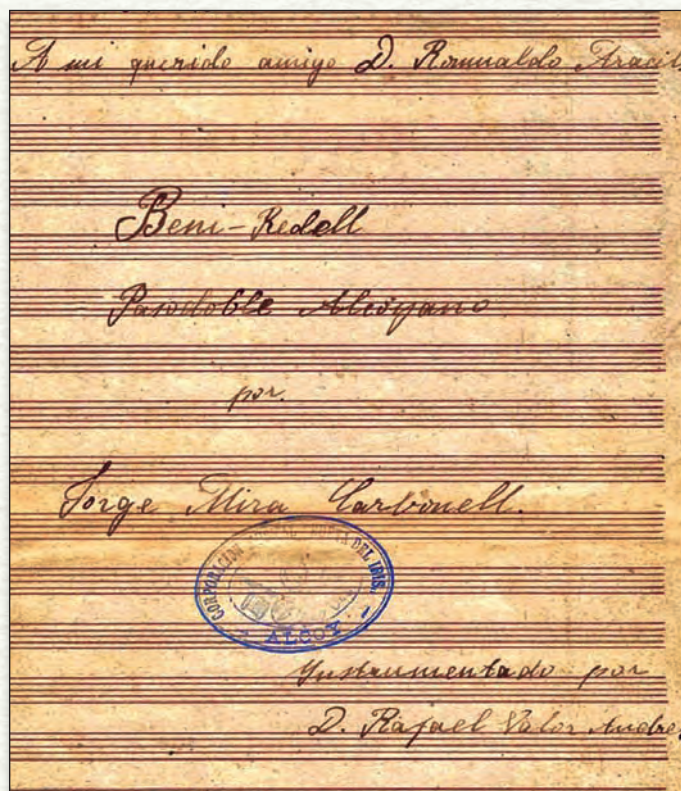 A mi querido amigo D. Romualdo Aracil
Beni-Redell
Pasodoble Alcoyano
por.
Jorge Mira Carbonell.
CORPORACION MUSICAL DEL IRIS.
ALCOY
Ynstrumentado por
D. Rafael Valor Andre